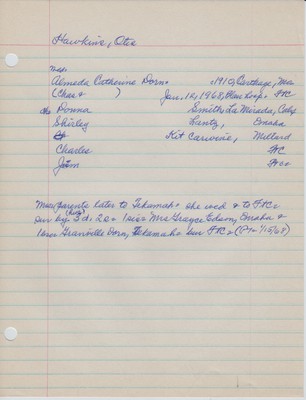 Hawkins, Otis
Almeda Catherine Dorn. -1910, Carthage, Mo
(Chas & ) Jan. 12, 1968, Hosp. FtC
ch Donna Smith, La Mirada, Calif
Shirley Lantz, Omaha
Kit Millard
Charles FtC
Jim
parents later to Tekamah. she wed & to FtC.
Sur by 3d. 2s. 1sis= Mrs Grayce Edson, Omaha &
1bro= Granville Dorn, Tekamah. bur FtC. 1/15/68)